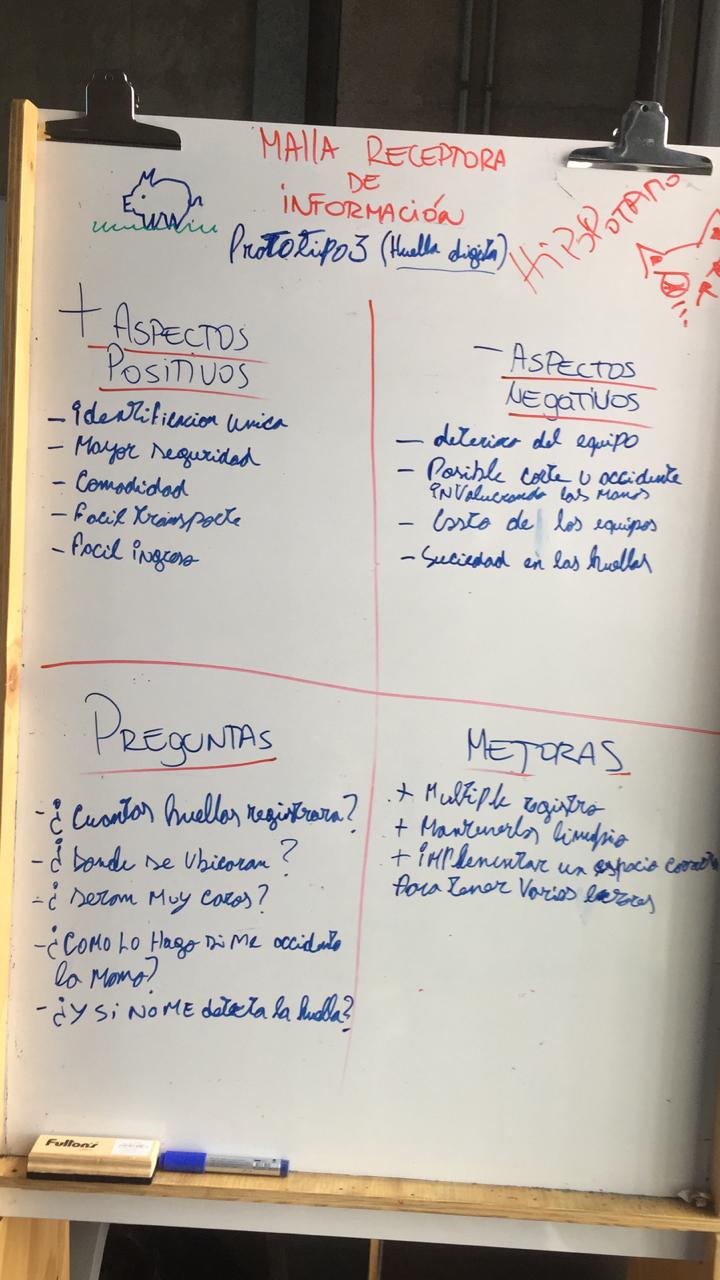 MAllA RECEPTORA
DE
iNFORMACIÓN
Prototipo 3 (Huella digita)
HiPOPOTAMO
+ ASPECTOS
POSITIVOS
- identificacion unica
- Mayor seguridad
- Comodidad
- facil transporte
- facil ingreso
- ASPECTOS
NEgATiVOS
- deterioro del equipo
- Posible corte u accidente
iNVolucrando las manos
- Costo de los equipos
- Suciedad en las huellas
PREGUNTAS
- ¿Cuantas huellas registrara?
- ¿Donde se ubicaran?
- ¿seran MUY caros?
- ¿COMO LO Hago si Me accidento
la Mano?
- ¿Y Si NO ME detecta la huella?
MEJORAS
+ Multiple registro
+ Mantenerlos limpio
+ iMPlementar un espacio
Para tener Varios
Fulton's